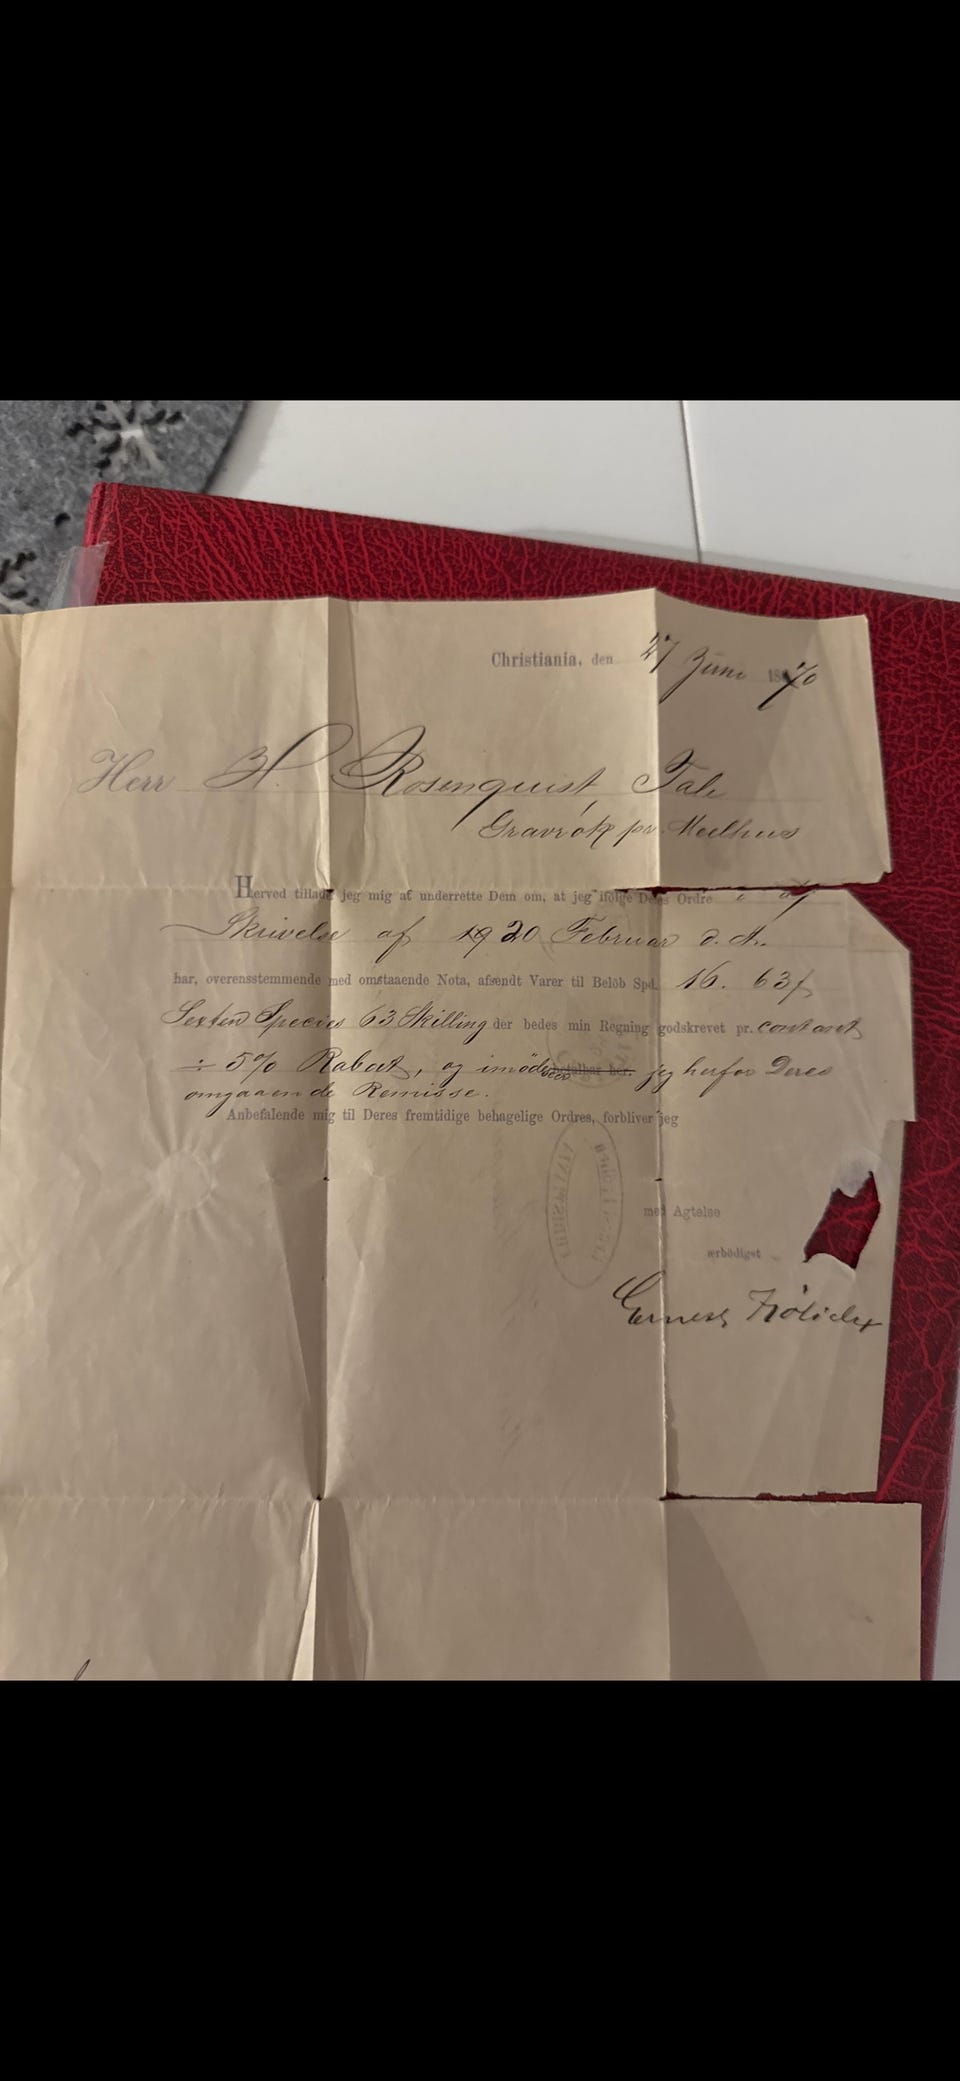 Christiania, den 27 Juni 1870
Herr H. Rosenquist Fale
Gravrok pr. Melhus
Herved tillader jeg mig at underrette Dem om, at jeg ifølge Deres Ordre i af
Skrivelse af 20 Februar d. A.
har, overensstemmende med omstaaende Nota, afsendt Varer til Beløb Spd. 16. 63
Sexten Species 63 Skilling der bedes min Regning godskrevet pr. contant
÷ 5% Rabat, og imødeseer betalbar her. jeg herfor Deres
omgaaende Remisse.
Anbefalende mig til Deres fremtidige behagelige Ordres, forbliver jeg
med Agtelse
ærbødigst
Ernest